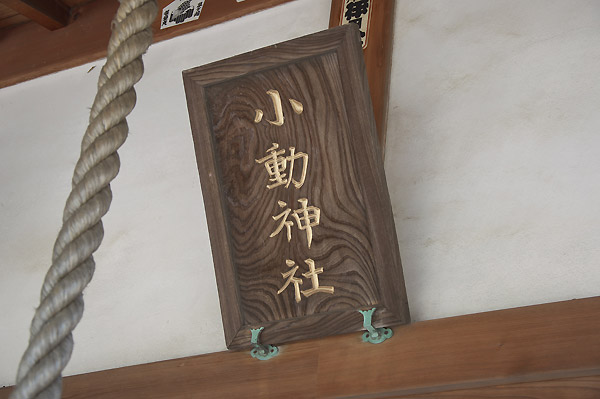 小動神社